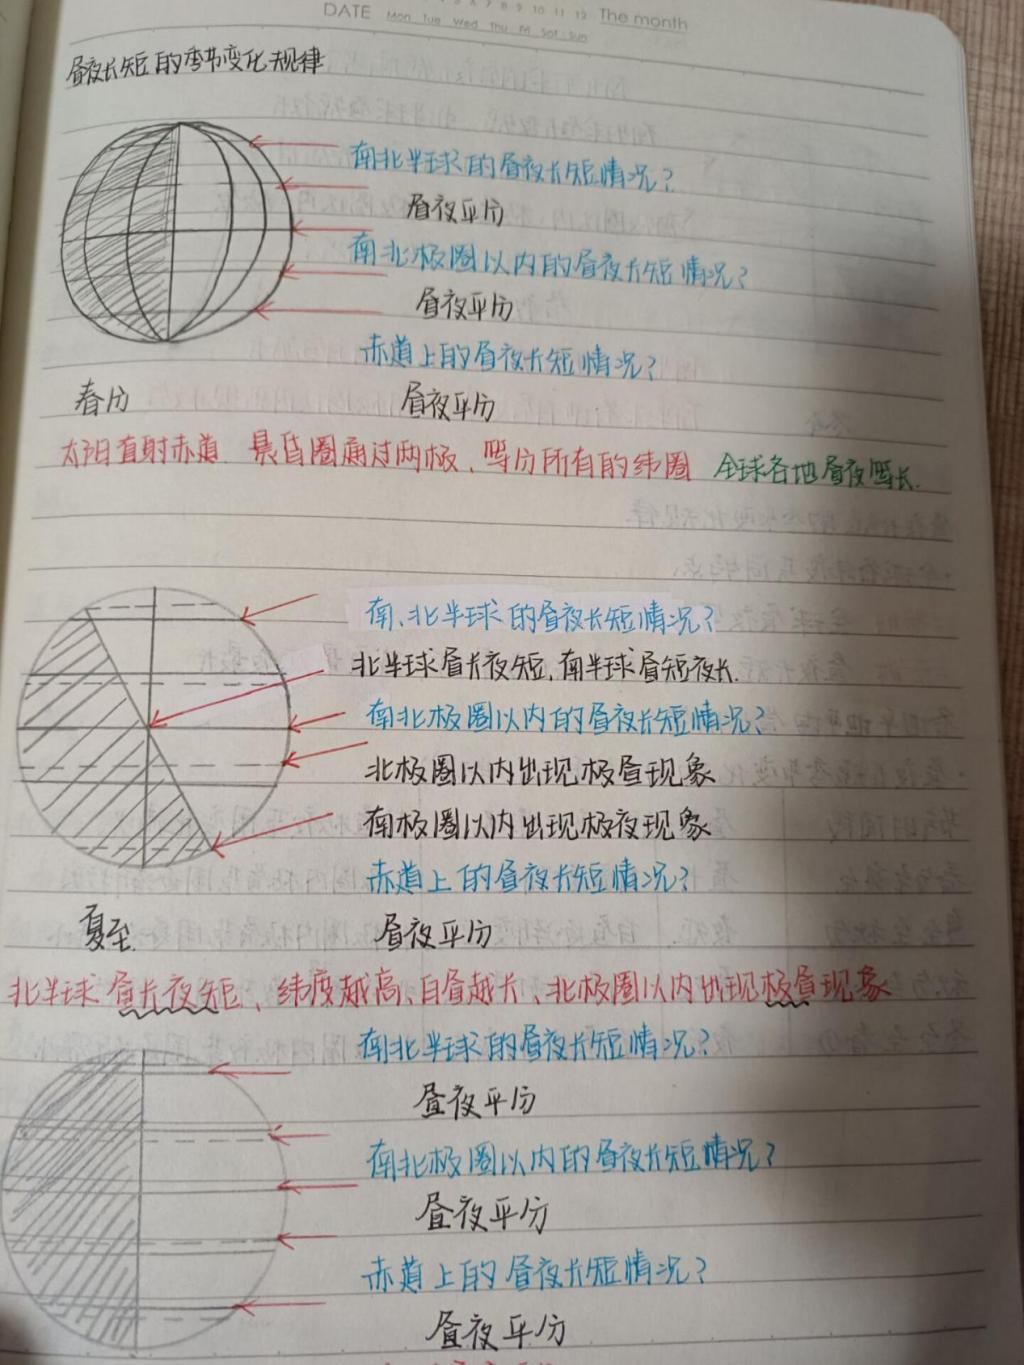 DATE
6 7 8 9 10 11 12 The month
Mon Tue Wed Thu Fri Sat Sun
昼夜长短的季节变化规律
南北半球的昼夜长短情况?
昼夜平分
南北极圈以内的昼夜长短情况?
昼夜平分
赤道上的昼夜长短情况?
春分 昼夜平分
太阳直射赤道 晨昏圈通过两极、等分所有的纬圈 全球各地昼夜等长.
南、北半球的昼夜长短情况?
北半球昼长夜短,南半球昼短夜长.
南北极圈以内的昼夜长短情况?
北极圈以内出现极昼现象
南极圈以内出现极夜现象
赤道上的昼夜长短情况?
夏至. 昼夜平分
北半球昼长夜短、纬度越高、白昼越长、北极圈以内出现极昼现象
南北半球的昼夜长短情况?
昼夜平分
南北极圈以内的昼夜长短情况?
昼夜平分
赤道上的昼夜长短情况?
昼夜平分